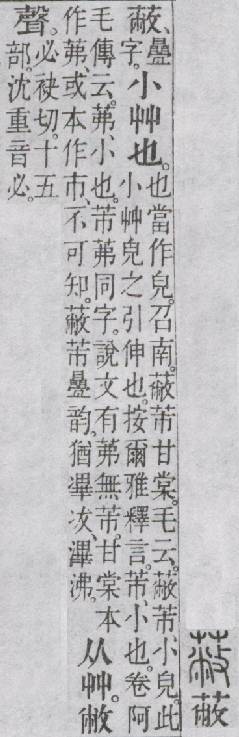 蔽
蔽
蔽、曡字。小艸也。也當作皃。召南。蔽芾甘棠。毛云。蔽芾、小皃。此
小艸皃之引伸也。按爾雅釋言。芾、小也。卷阿
毛傳云。茀、小也。芾茀同字。說文有茀無芾。甘棠本
作茀、或本作巿、不可知。蔽芾曡韵、猶㓖冹、滭沸。从艸。敝
聲。必袂切。十五
部。沈重音必。